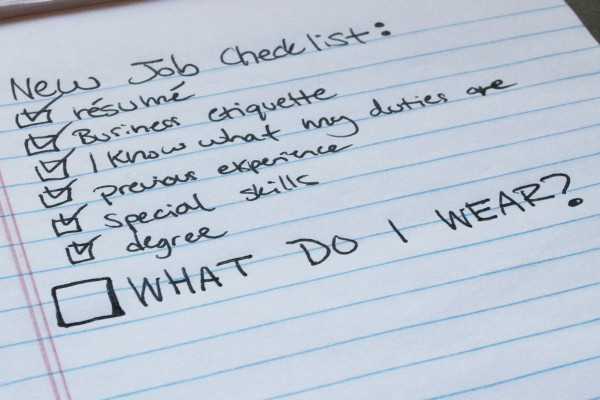 New Job Checklist:
résumé
Business etiquette
I know what my duties are
previous experience
special skills
degree
WHAT DO I WEAR?